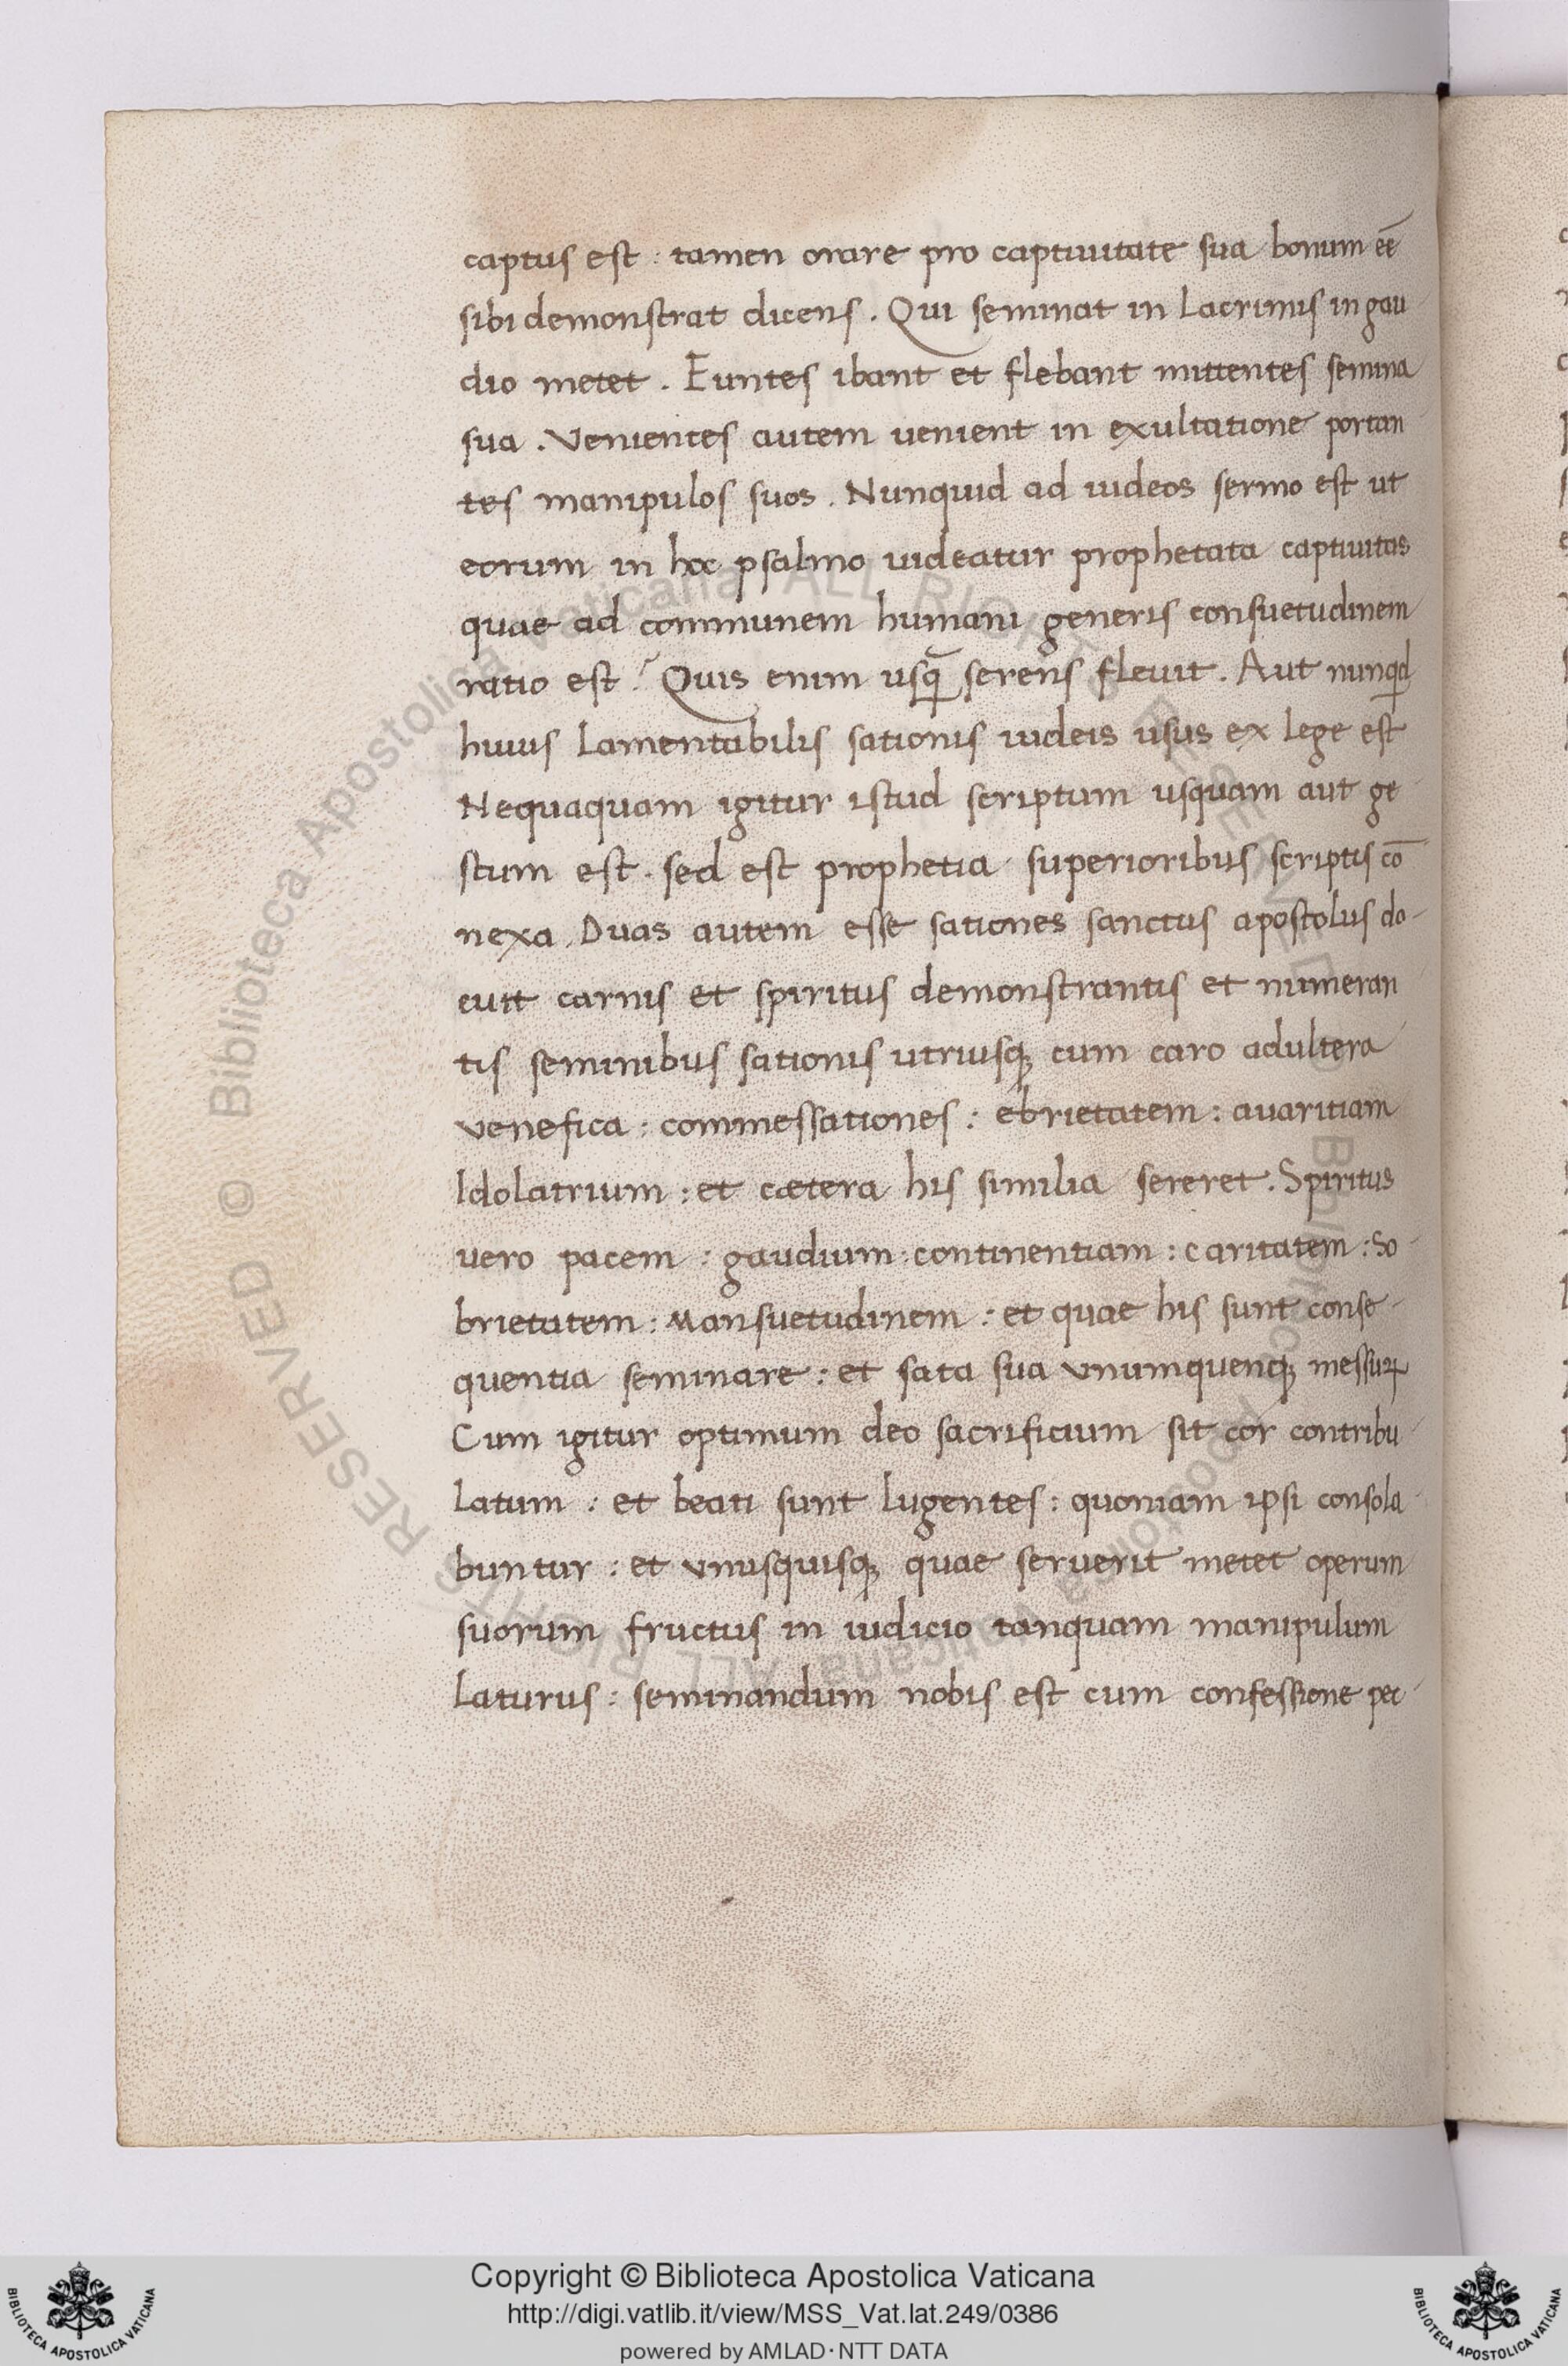 captus est : tamen orare pro captiuitate sua bonum eē
sibi demonstrat dicens . Qui seminat in Lacrimis in gau
dio metet . Euntes ibant et flebant mittentes semina
sua . Venientes autem uenient in exultatione portan
tes manipulos suos . Nunquid ad iudeos sermo est ut
eorum in hoc psalmo uideatur prophetata captiuitas
quae ad communem humani generis consuetudinem
ratio est ? Quis enim usq̄ serens fleuit . Aut nunqd
huius Lamentabilis sationis iudeis usus ex lege est
Nequaquam igitur istud scriptum usquam aut ge
stum est . sed est prophetia superioribus scriptis cō
nexa . Duas autem esse sationes sanctus apostolus do-
cuit carnis et spiritus demonstrantis et numeran
tis seminibus sationis utriusq; cum caro adultera
venefica : commessationes : ebrietatem : auaritiam
Idolatrium : et cætera his similia sereret . Spiritus
uero pacem : gaudium : continentiam : caritatem : So-
brietatem : Mansuetudinem : et quae his sunt conse-
quentia seminare : et sata sua vnumquenq; messuꝝ
Cum igitur optimum deo sacrificium sit cor contribu
Latum : et beati sunt Lugentes : quoniam ipsi consola
buntur : et vnusquisq; quae seruerit metet operum
suorum fructus in iudicio tanquam manipulum
Laturus : seminandum nobis est cum confessione pec-
© Biblioteca Apostolica Vaticana ALL RIGHTS RESERVED © Biblioteca Apostolica Vaticana ALL RIGHTS RESERVED
Copyright © Biblioteca Apostolica Vaticana
http://digi.vatlib.it/view/MSS_Vat.lat.249/0386
powered by AMLAD·NTT DATA
BIBLIOTECA APOSTOLICA VATICANA
BIBLIOTECA APOSTOLICA VATICANA